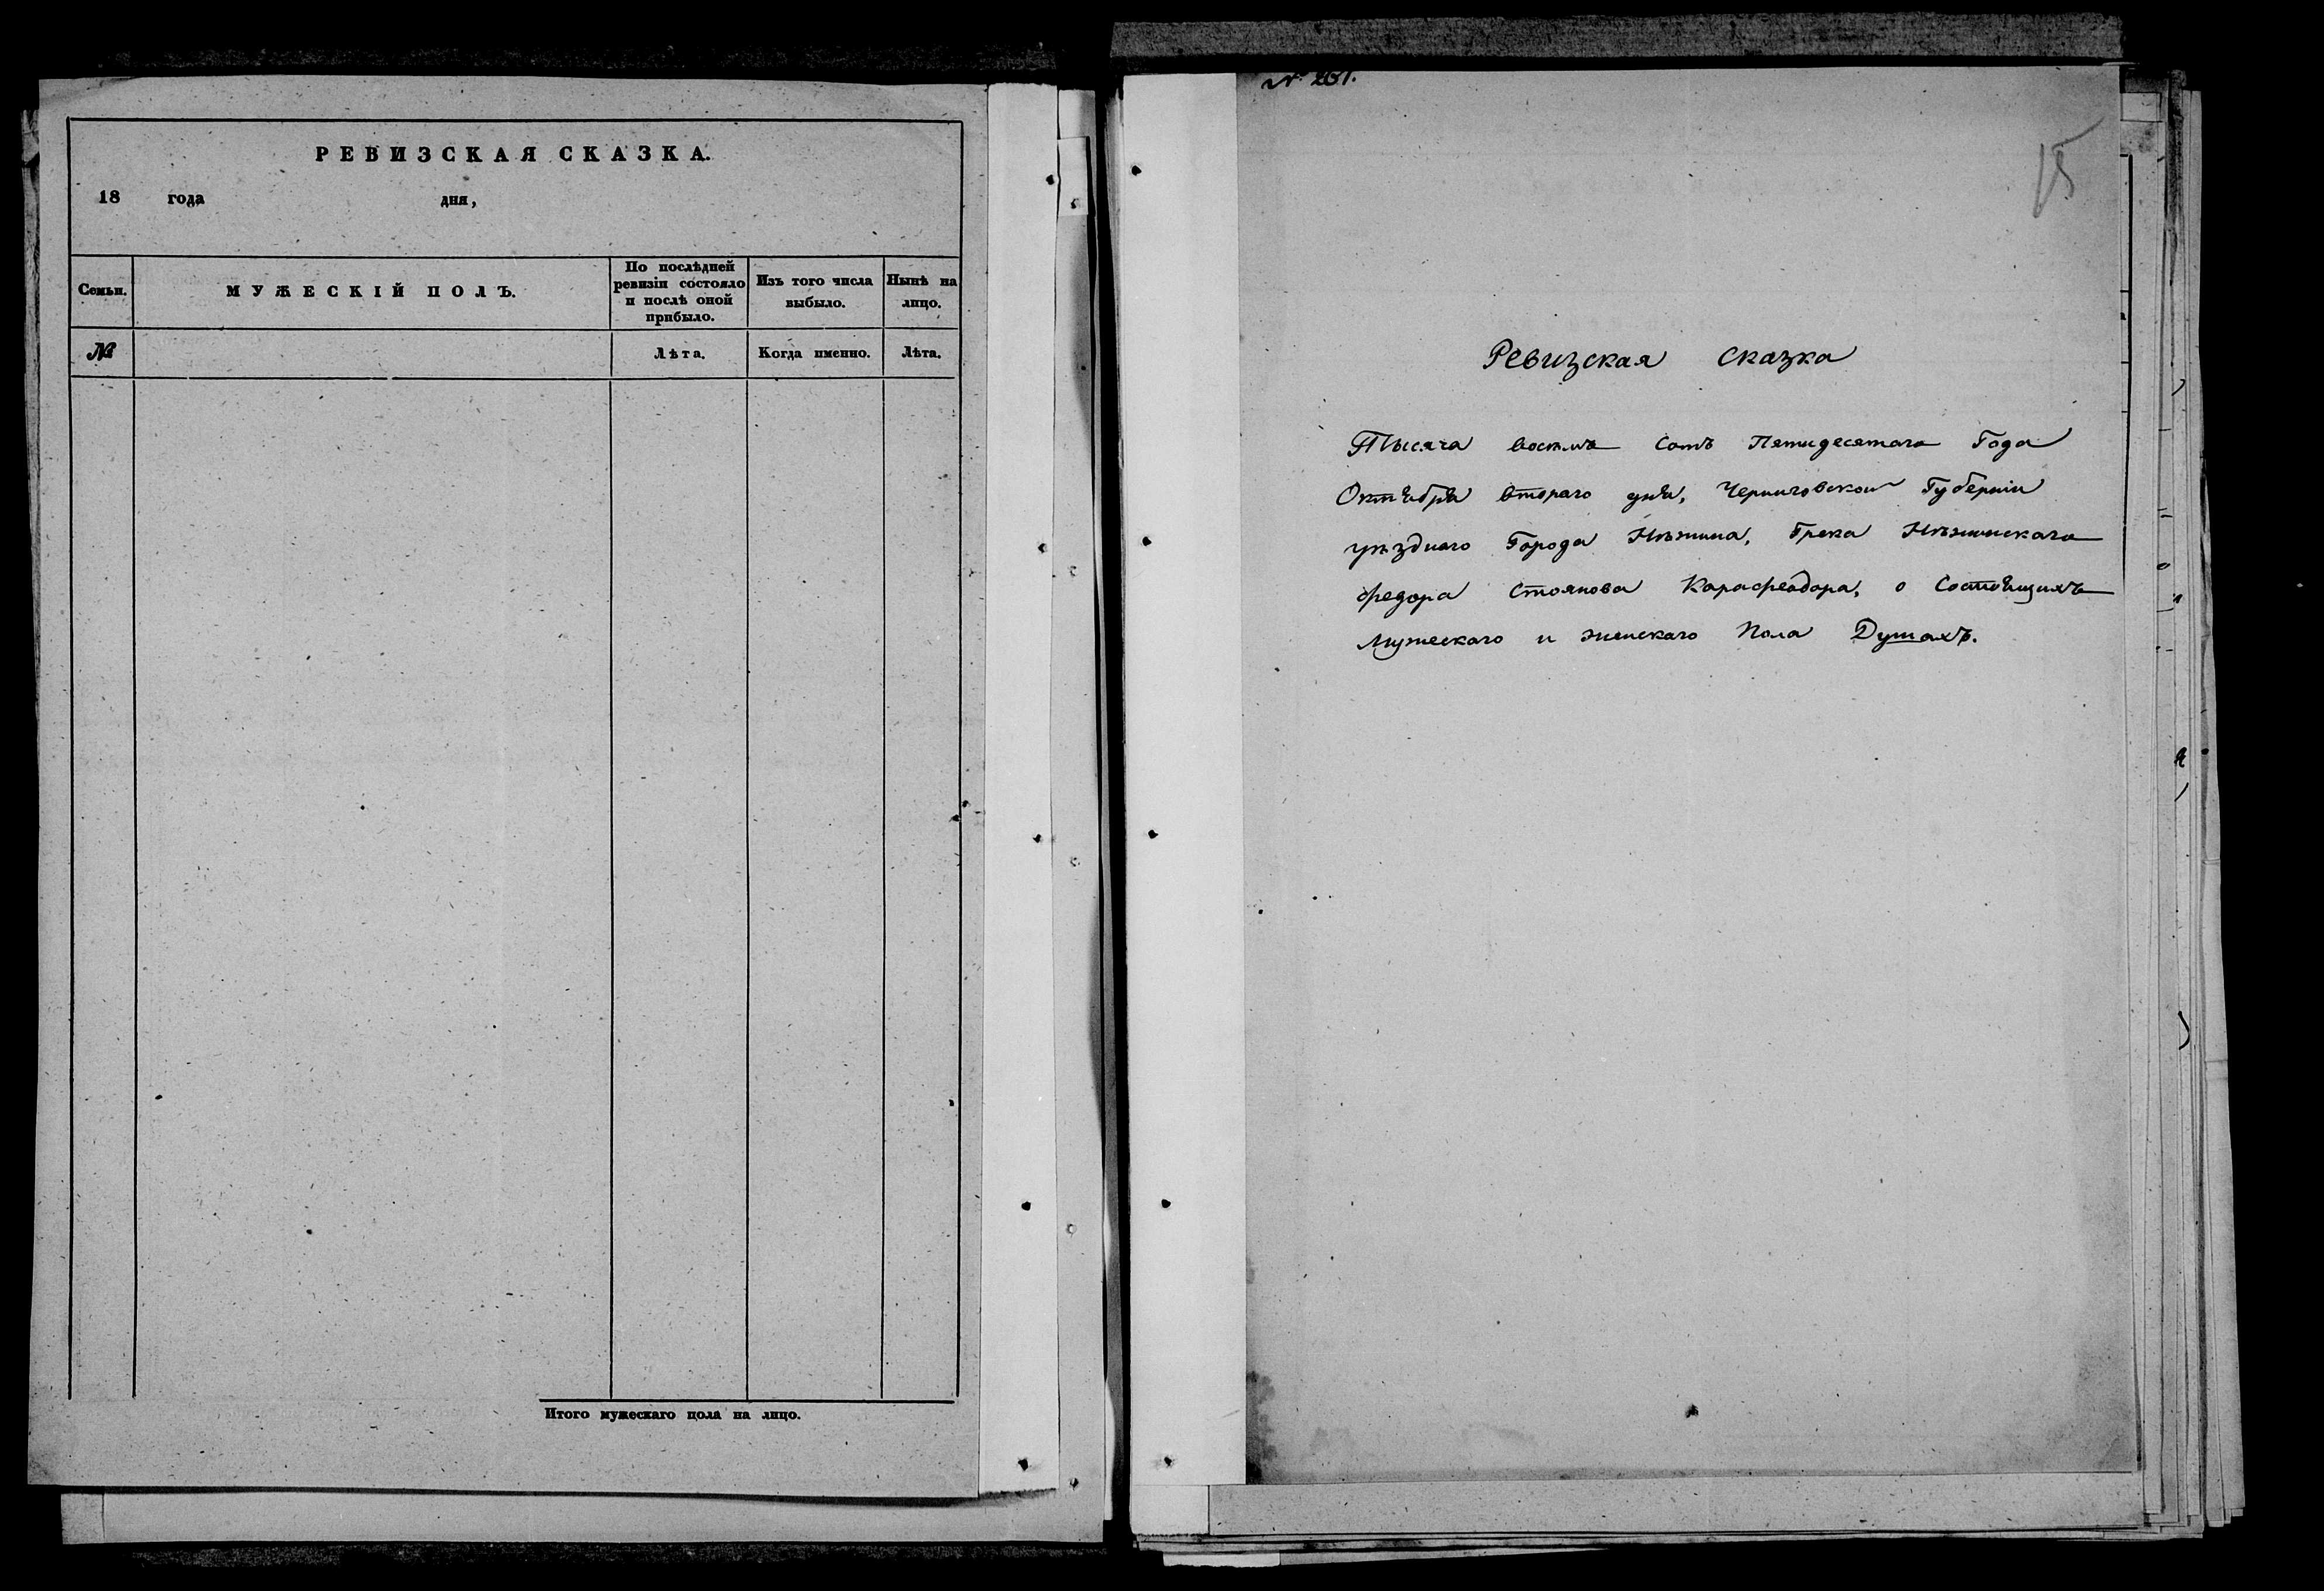 РЕВИЗСКАЯ СКАЗКА.
18 года дня,
Семьи.
МУЖЕСКІЙ ПОЛЪ.
По послѣдней
ревизіи состояло
и послѣ оной
прибыло.
Изъ того числа
выбыло.
Нынѣ на
лицо.
№
Лѣта.
Когда именно.
Лѣта.
Итого мужескаго пола на лицо.
№ 261.
15
Ревизская сказка
Тысяча восемь сотъ Пятидесятаго Года
Октября втораго дня, Черниговской Губерніи
уѣзднаго Города Нѣжина, Грека Нѣжинскаго
Федора Стоянова Карафеодора, о Состоящихъ
мужескаго и женскаго Пола Душахъ.